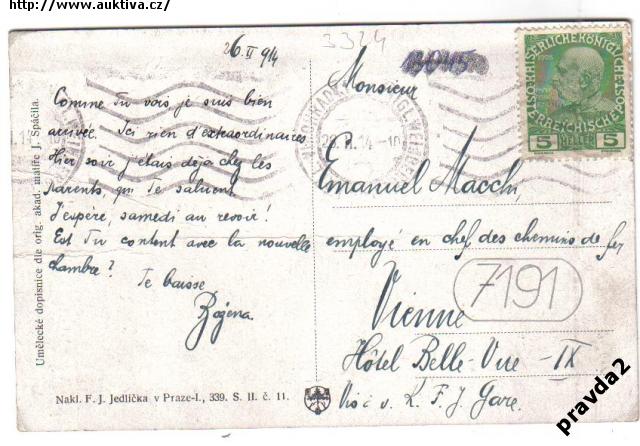 http://www.auktiva.cz/
26. II 914
3324
Monsieur
Comme Tu vois je suis bien
arrivée. Ici rien d'extraordinaires
Hier soir j'etais déjà chez les
parents, qui Te saluent
J'espére, samedi au revoir!
Est Tu content avec la nouvelle
chambre?
Te baisse
Božena
Emanuel Macchi,
employé en chef des chemins de fer
7191
Vienne
Hôtel Belle-Vue - IX
Vis à v. K. F. J. Gare.
5 HELLER 5
Umělecké dopisnice dle orig. akad. malíře J. Špáčila.
Nakl. F. J. Jedlička v Praze-I., 339. S. II. č. 11.
pravda2